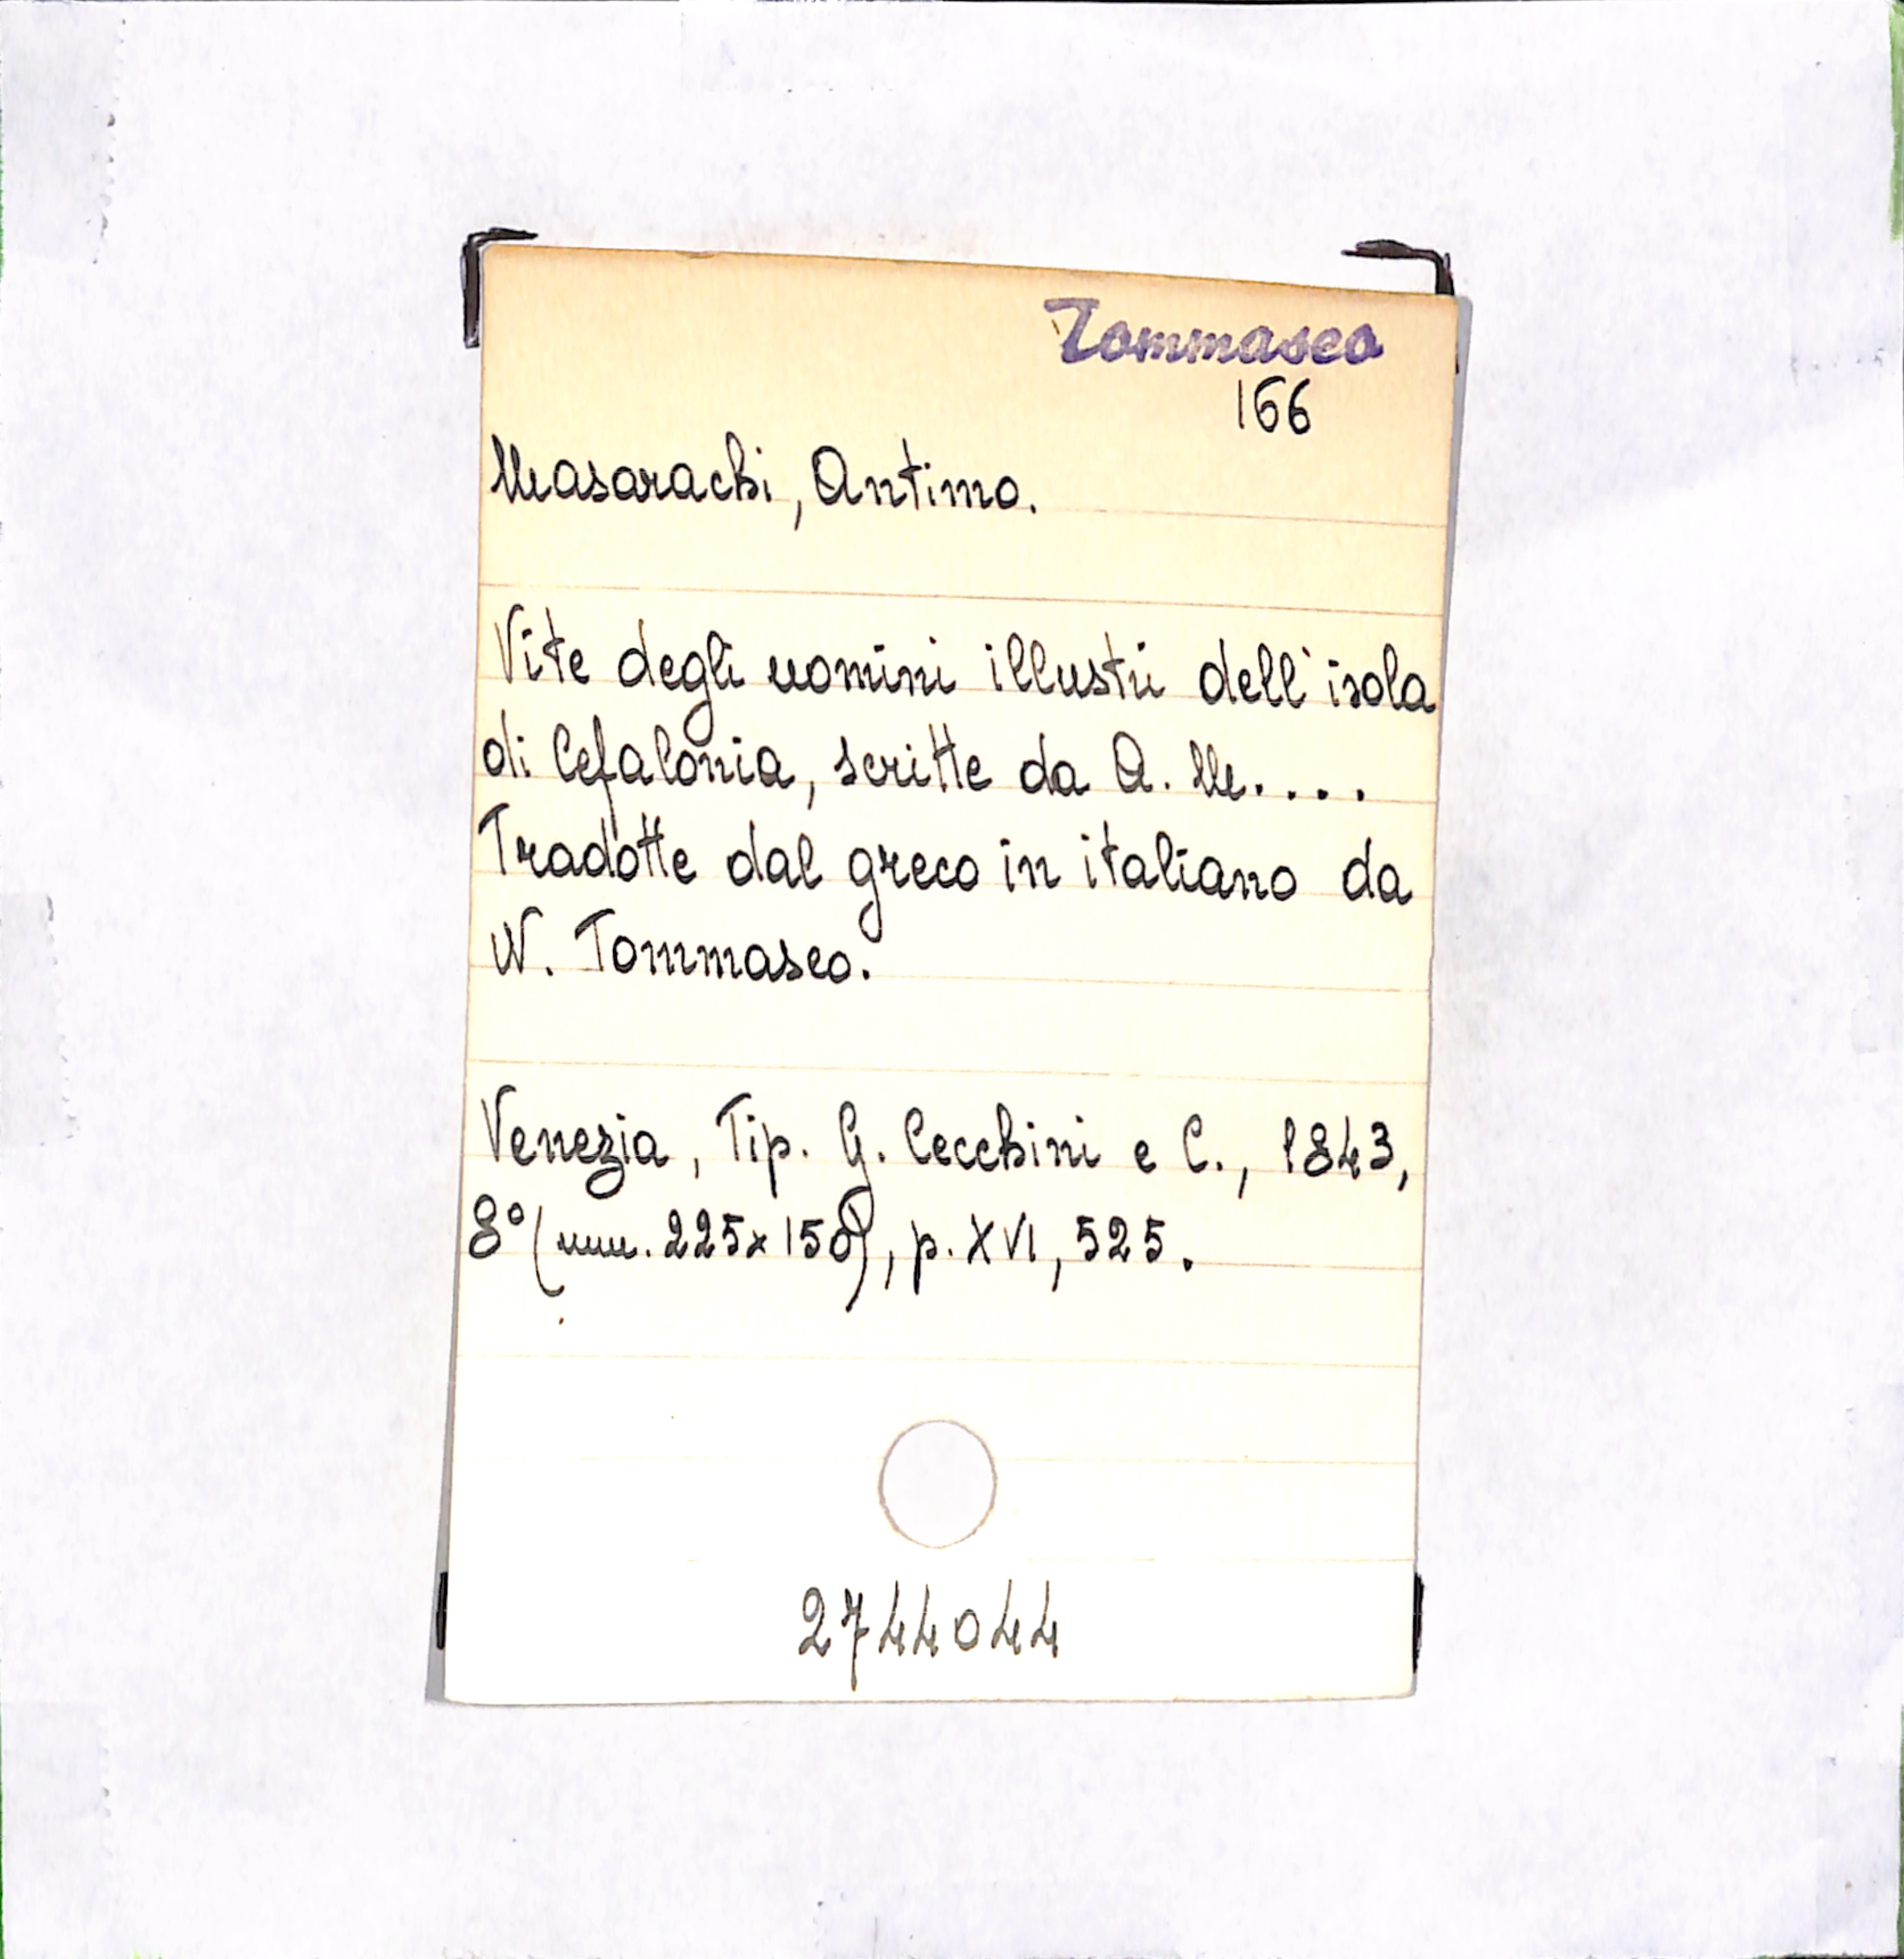 Tommaseo
166
Masarachi, Antimo.
Vite degli uomini illustri dell'isola
di Cefalonia, scritte da A. M....
Tradotte dal greco in italiano da
N. Tommaseo.
Venezia, Tip. G. Cecchini e C., 1843,
8° (mm. 225x150), p. XVI, 525.
2744044